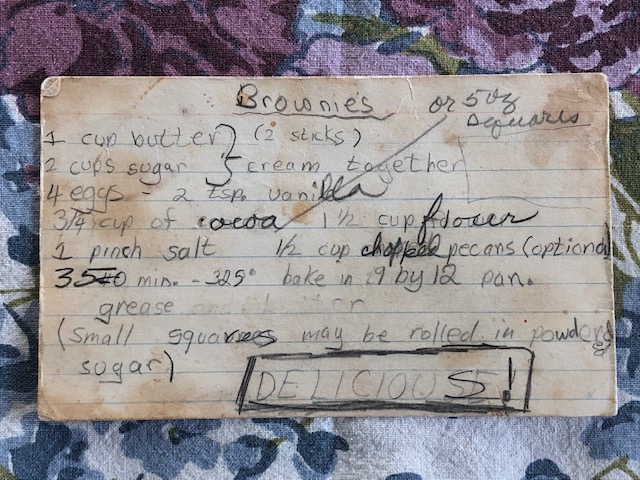 Brownies
or 5 oz
squares
1 cup butter } (2 sticks)
2 cups sugar } cream together
4 eggs - 2 tsp. vanilla
3/4 cup of cocoa 1 1/2 cup flour
1 pinch salt 1/2 cup chopped pecans (optional)
35 min. - 325° bake in 9 by 12 pan.
grease
(Small squares may be rolled in powdered
sugar)
DELICIOUS!